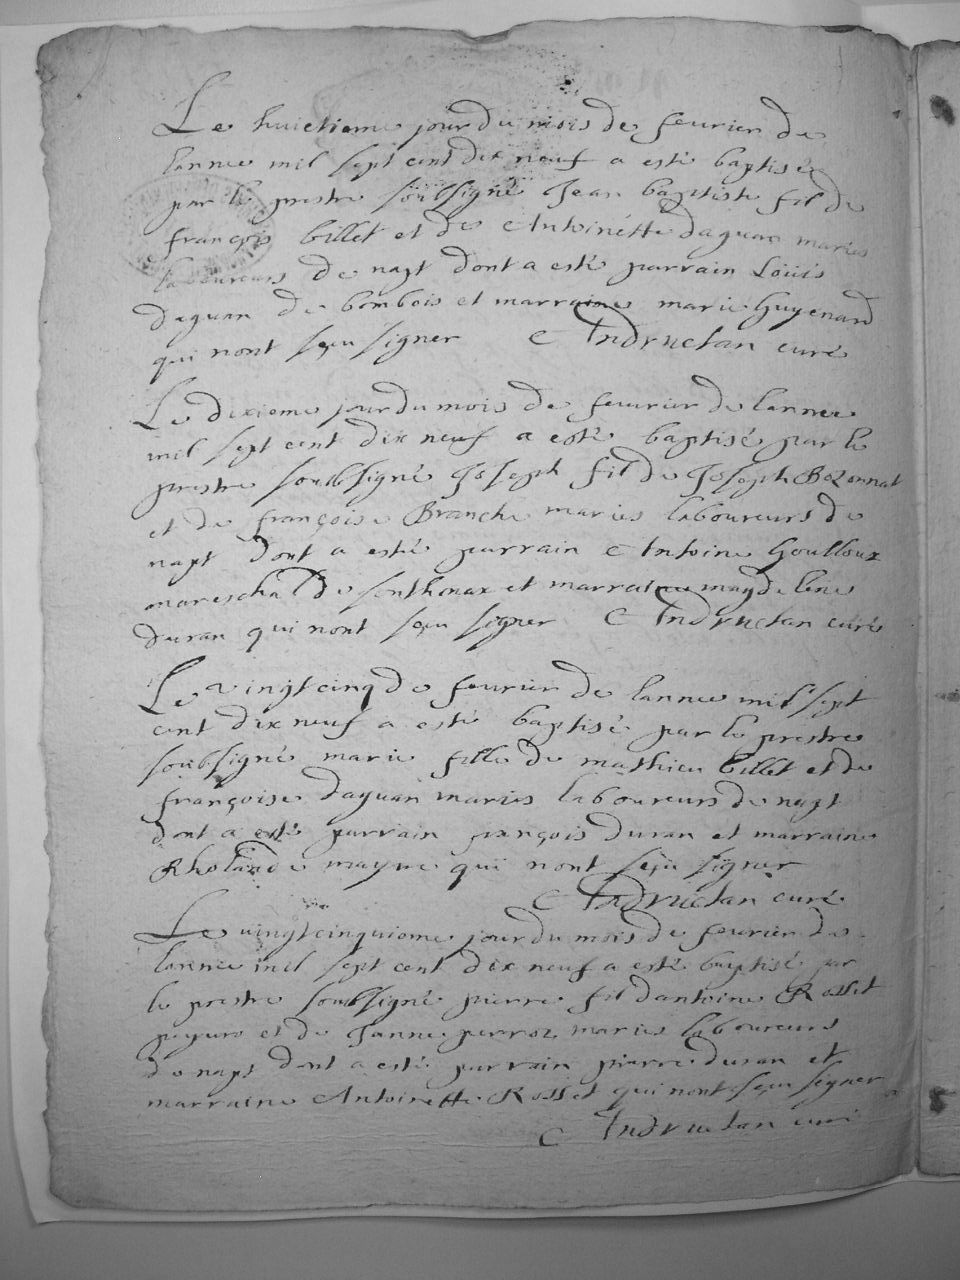 Le huictieme jour du mois de feurier de
lannee mil sept cent dix neuf a esté baptisé
par le prestre soubsigné Jean baptiste fil de
françois billet et de Antoinette daguan mariés
laboureurs de napt dont a esté parrain Loüis
daguan de bombois et marraine marie Guyenard
qui nont sçeu signer curé
Le dixieme jour du mois de feurier de lannee
mil sept cent dix neuf a esté baptisé par le
prestre soubsigné Joseph fil de Joseph Bozonnat
et de françoise Branche mariés laboureurs de
napt dont a esté parrain Antoine Goulloux
mareschal de sonthonax et marraine magdelene
duran qui nont sçeu signer curé
Le vingt cinq de feurier de lannee mil sept
cent dix neuf a esté baptisé par le prestre
soubsigné marie fille de mathieu billet et de
françoise daguan mariés laboureurs de napt
dont a esté parrain françois duran et marraine
mayre qui nont sçeu signer
curé
Le uingt cinquieme jour du mois de feurier de
lannee mil sept cent dix neuf a esté baptisé par
le prestre soubsigné pierre fil dantoine Rosset
et de Janne perroz mariés laboureurs
de napt dont a esté parrain pierre duran et
marraine Antoinette Rosset qui nont sçeu signer
curé